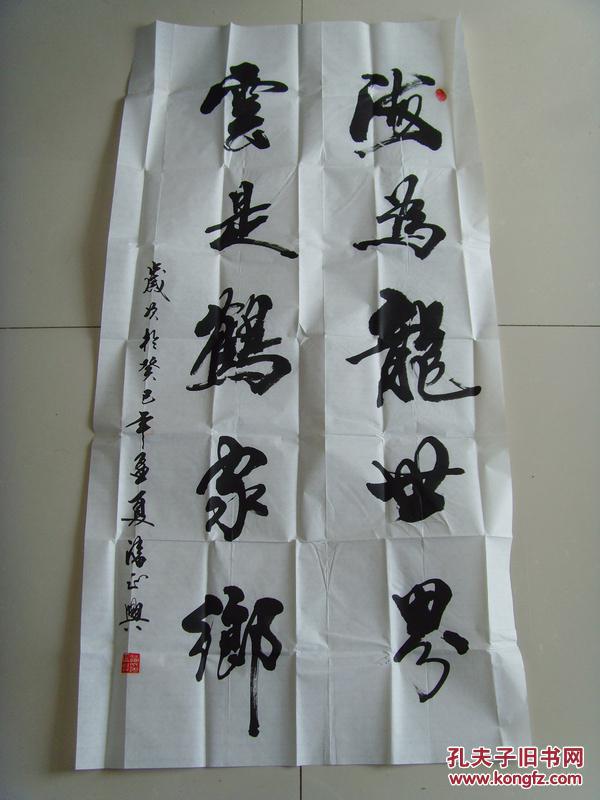 海為龍世界
雲是鶴家鄉
歲次於癸巳年孟夏 正興
孔夫子旧书网
www.kongfz.com